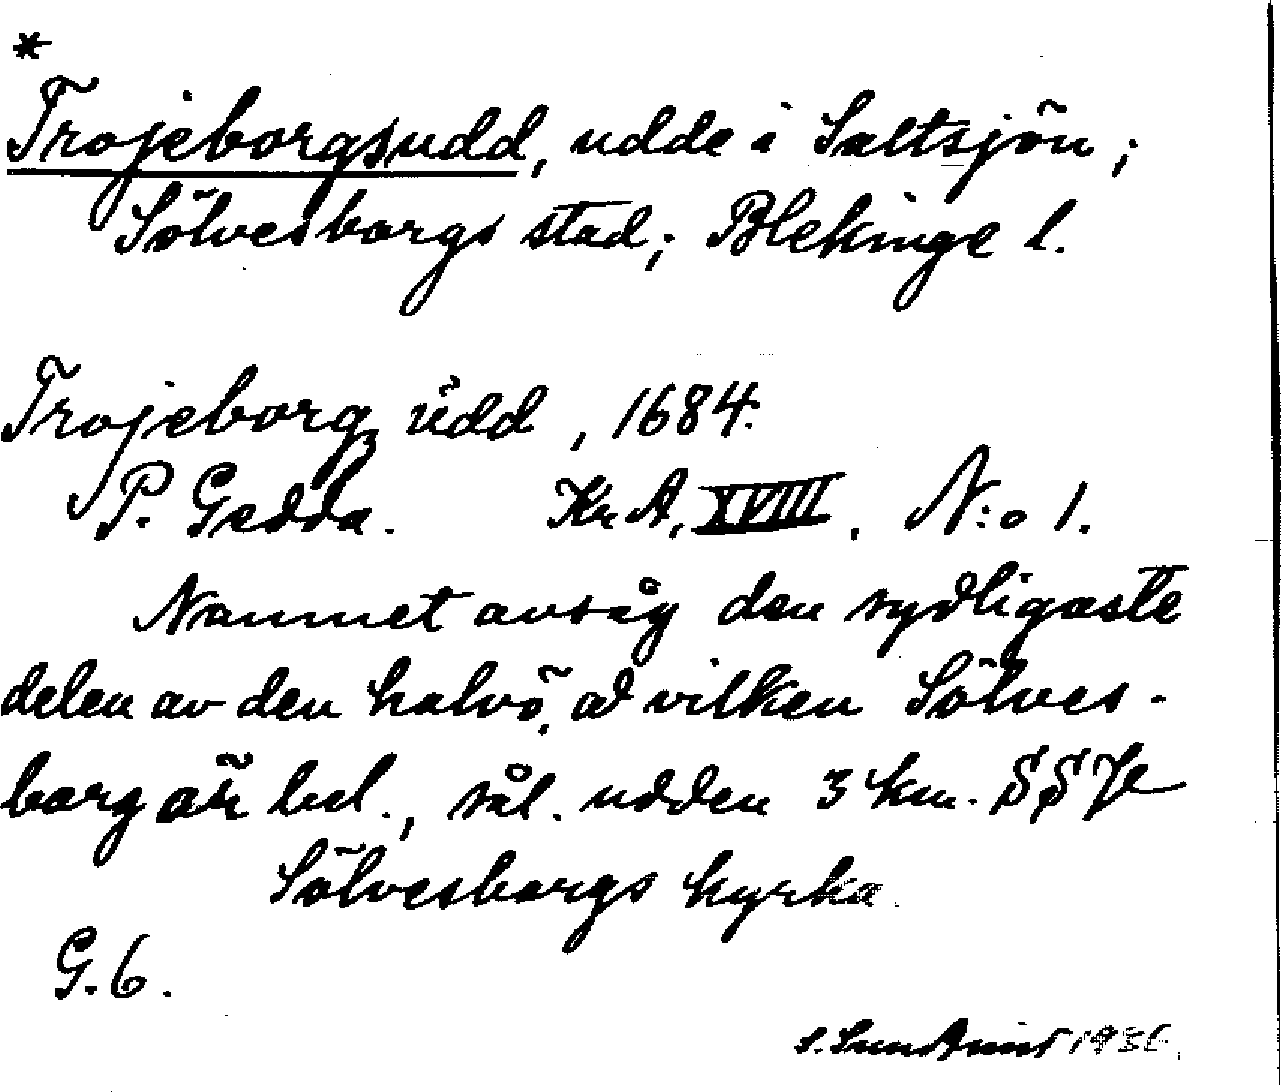 *
Trojeborgsudd, udde i Saltsjön;
Sölvesborgs stad; Blekinge l.
Trojeborgz üdd, 1684.
P. Gedda. Kr A. XVIII. N:o 1.
Namnet avsåg den sydligaste
delen av den halvö, å vilken Sölves-
borg är bel., sål. udden 3 km. SSV
Sölvesborgs kyrka.
G. 6.